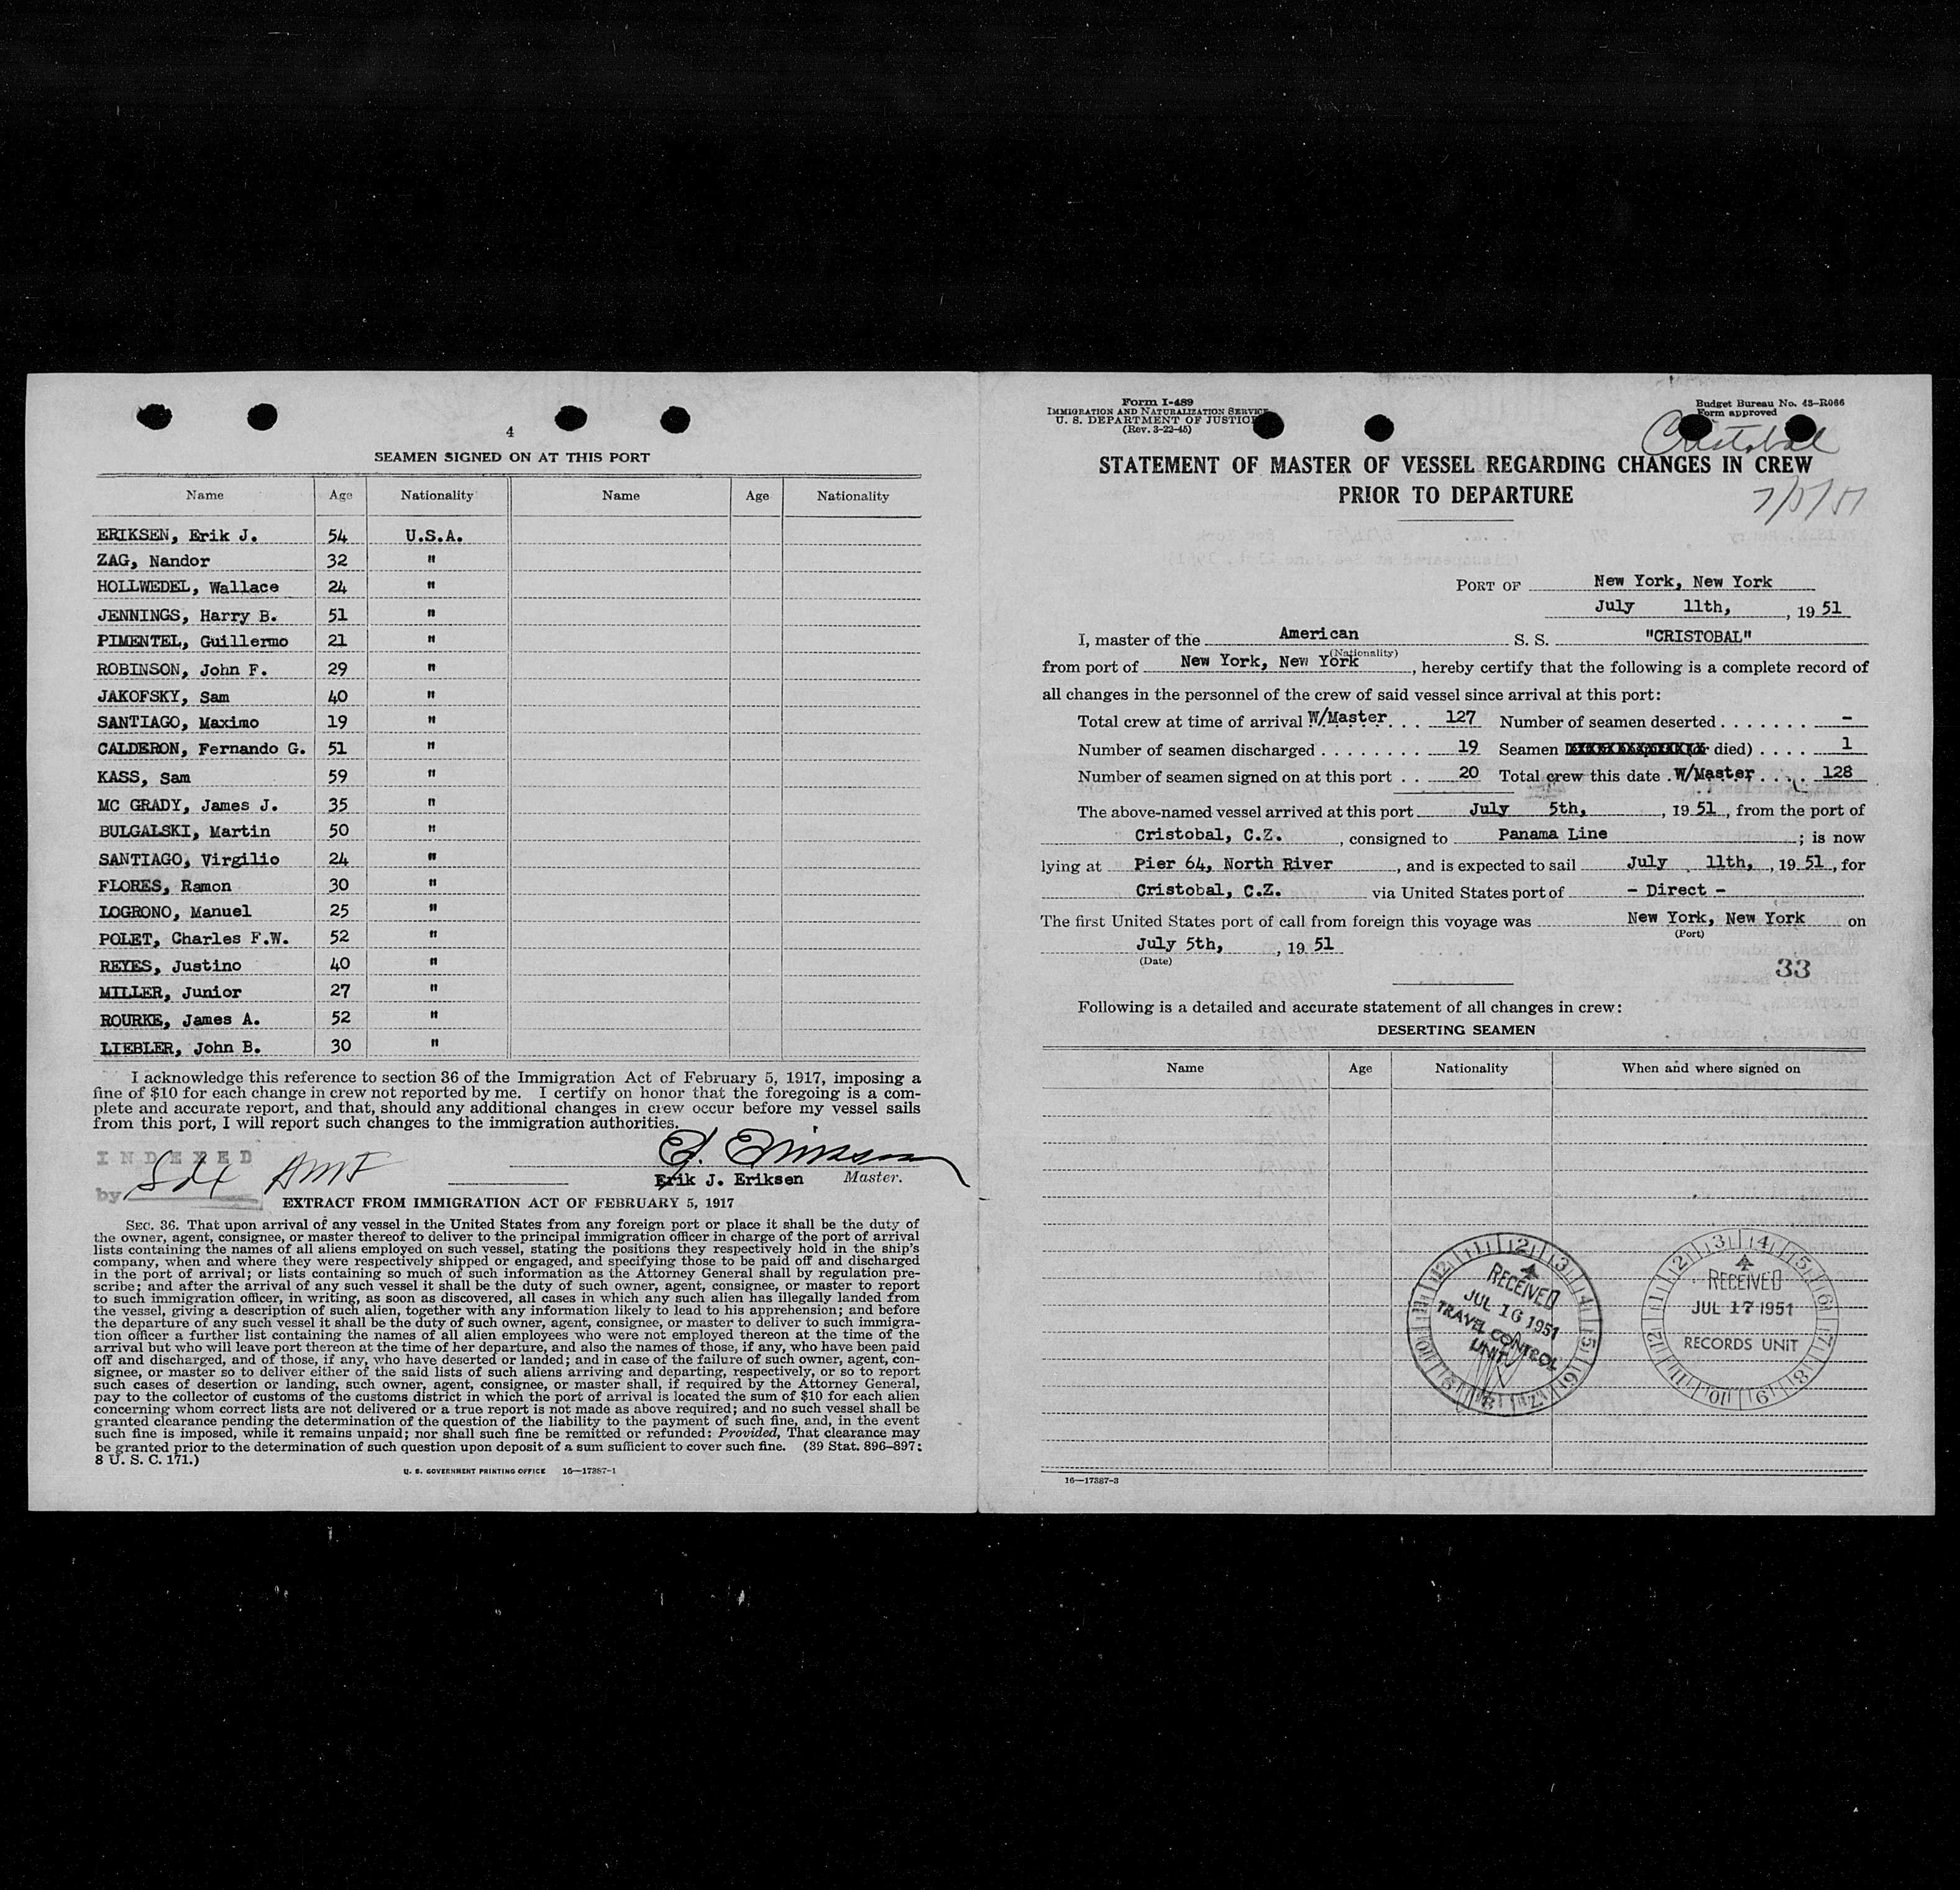 4
SEAMEN SIGNED ON AT THIS PORT
Name Age Nationality Name Age Nationality
ERIKSEN, Erik J. 54 U.S.A.
ZAG, Nandor 32 "
HOLLWEDEL, Wallace 24 "
JENNINGS, Harry B. 51 "
PIMENTEL, Guillermo 21 "
ROBINSON, John F. 29 "
JAKOFSKY, Sam 40 "
SANTIAGO, Maximo 19 "
CALDERON, Fernando G. 51 "
KASS, Sam 59 "
MC GRADY, James J. 35 "
BULGALSKI, Martin 50 "
SANTIAGO, Virgilio 24 "
FLORES, Ramon 30 "
LOGRONO, Manuel 25 "
POLET, Charles F.W. 52 "
REYES, Justino 40 "
MILLER, Junior 27 "
ROURKE, James A. 52 "
LIEBLER, John B. 30 "
I acknowledge this reference to section 36 of the Immigration Act of February 5, 1917, imposing a
fine of $10 for each change in crew not reported by me. I certify on honor that the foregoing is a com-
plete and accurate report, and that, should any additional changes in crew occur before my vessel sails
from this port, I will report such changes to the immigration authorities.
INDEXED
by
E. J. Eriksen
Erik J. Eriksen Master.
EXTRACT FROM IMMIGRATION ACT OF FEBRUARY 5, 1917
SEC. 36. That upon arrival of any vessel in the United States from any foreign port or place it shall be the duty of
the owner, agent, consignee, or master thereof to deliver to the principal immigration officer in charge of the port of arrival
lists containing the names of all aliens employed on such vessel, stating the positions they respectively hold in the ship's
company, when and where they were respectively shipped or engaged, and specifying those to be paid off and discharged
in the port of arrival; or lists containing so much of such information as the Attorney General shall by regulation pre-
scribe; and after the arrival of any such vessel it shall be the duty of such owner, agent, consignee, or master to report
to such immigration officer, in writing, as soon as discovered, all cases in which any such alien has illegally landed from
the vessel, giving a description of such alien, together with any information likely to lead to his apprehension; and before
the departure of any such vessel it shall be the duty of such owner, agent, consignee, or master to deliver to such immigra-
tion officer a further list containing the names of all alien employees who were not employed thereon at the time of the
arrival but who will leave port thereon at the time of her departure, and also the names of those, if any, who have been paid
off and discharged, and of those, if any, who have deserted or landed; and in case of the failure of such owner, agent, con-
signee, or master so to deliver either of the said lists of such aliens arriving and departing, respectively, or so to report
such cases of desertion or landing, such owner, agent, consignee, or master shall, if required by the Attorney General,
pay to the collector of customs of the customs district in which the port of arrival is located the sum of $10 for each alien
concerning whom correct lists are not delivered or a true report is not made as above required; and no such vessel shall be
granted clearance pending the determination of the question of the liability to the payment of such fine, and, in the event
such fine is imposed, while it remains unpaid; nor shall such fine be remitted or refunded: Provided, That clearance may
be granted prior to the determination of such question upon deposit of a sum sufficient to cover such fine. (39 Stat. 896–897;
8 U. S. C. 171.)
U. S. GOVERNMENT PRINTING OFFICE 16—17387-1
Form I-489
IMMIGRATION AND NATURALIZATION SERVICE
U. S. DEPARTMENT OF JUSTICE
(Rev. 3-22-45)
Budget Bureau No. 43–R066
Form approved
Cristobal
STATEMENT OF MASTER OF VESSEL REGARDING CHANGES IN CREW
PRIOR TO DEPARTURE
7/5/51
PORT OF New York, New York
July 11th, , 19 51
I, master of the American S. S. "CRISTOBAL"
(Nationality)
from port of New York, New York , hereby certify that the following is a complete record of
all changes in the personnel of the crew of said vessel since arrival at this port:
Total crew at time of arrival W/Master . . . 127 Number of seamen deserted . . . . . . . –
Number of seamen discharged . . . . . . . . 19 Seamen died) . . . . 1
Number of seamen signed on at this port . . 20 Total crew this date . W/Master . . . . 128
The above-named vessel arrived at this port July 5th, , 19 51 , from the port of
Cristobal, C.Z. , consigned to Panama Line ; is now
lying at Pier 64, North River , and is expected to sail July 11th, , 19 51 , for
Cristobal, C.Z. via United States port of – Direct –
The first United States port of call from foreign this voyage was New York, New York on
(Port)
July 5th, , 19 51
(Date)
33
Following is a detailed and accurate statement of all changes in crew:
DESERTING SEAMEN
Name Age Nationality When and where signed on
RECEIVED
JUL 16 1951
TRAVEL CONTROL
UNIT
RECEIVED
JUL 17 1951
RECORDS UNIT
16—17387-3